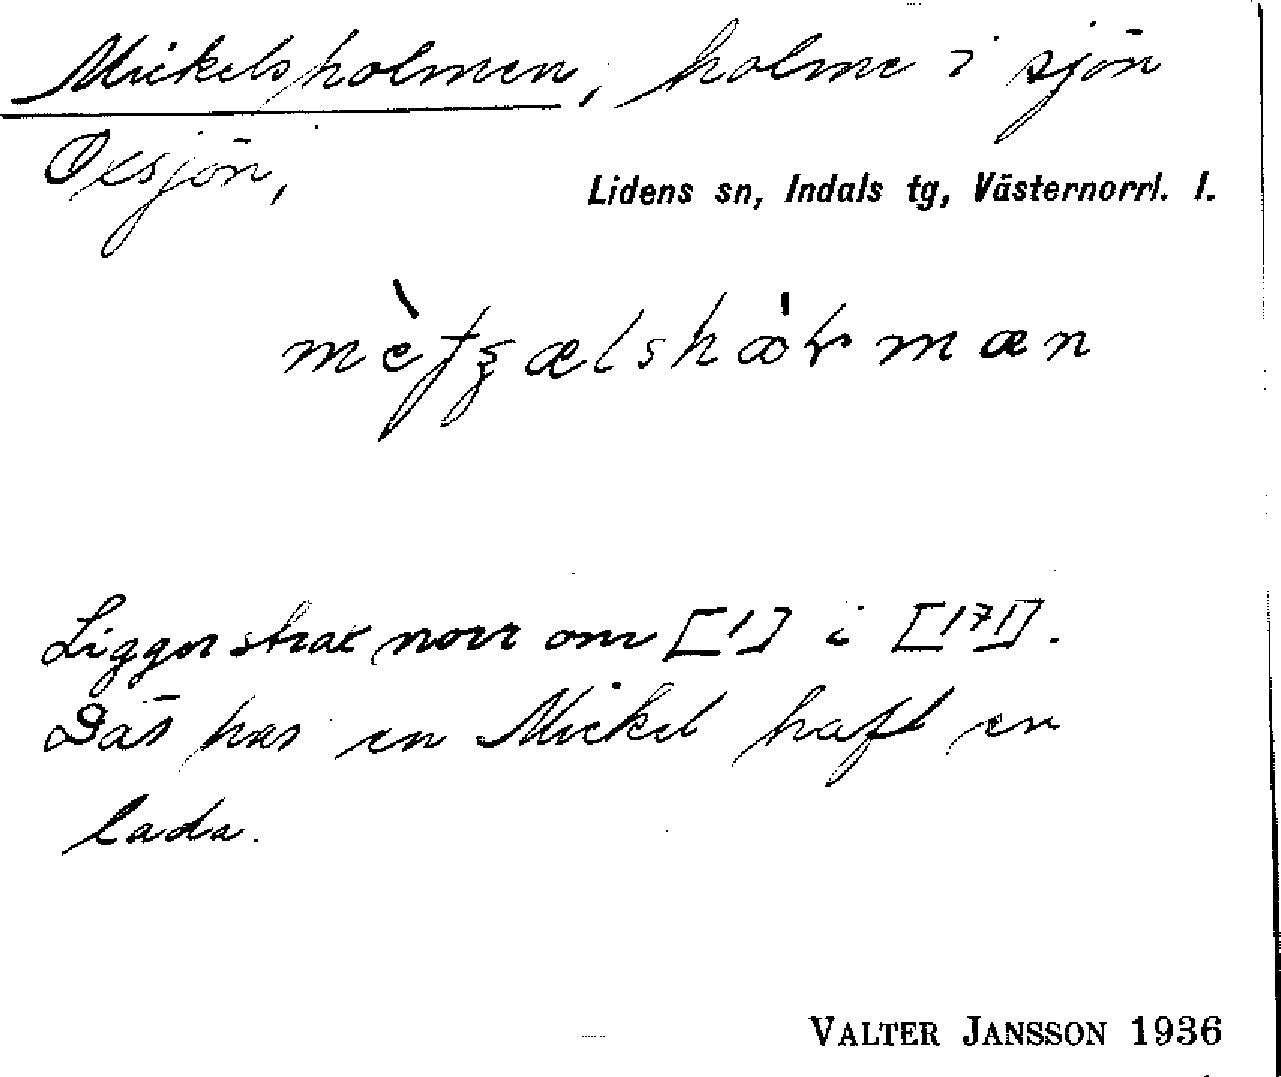 Mickelsholmen, holme i sjön
Oxsjön,
Lidens sn, Indals tg, Västernorrl. l.
Ligger strax norr om [1] i [171].
Där har en Mickel haft en
lada.
VALTER JANSSON 1936